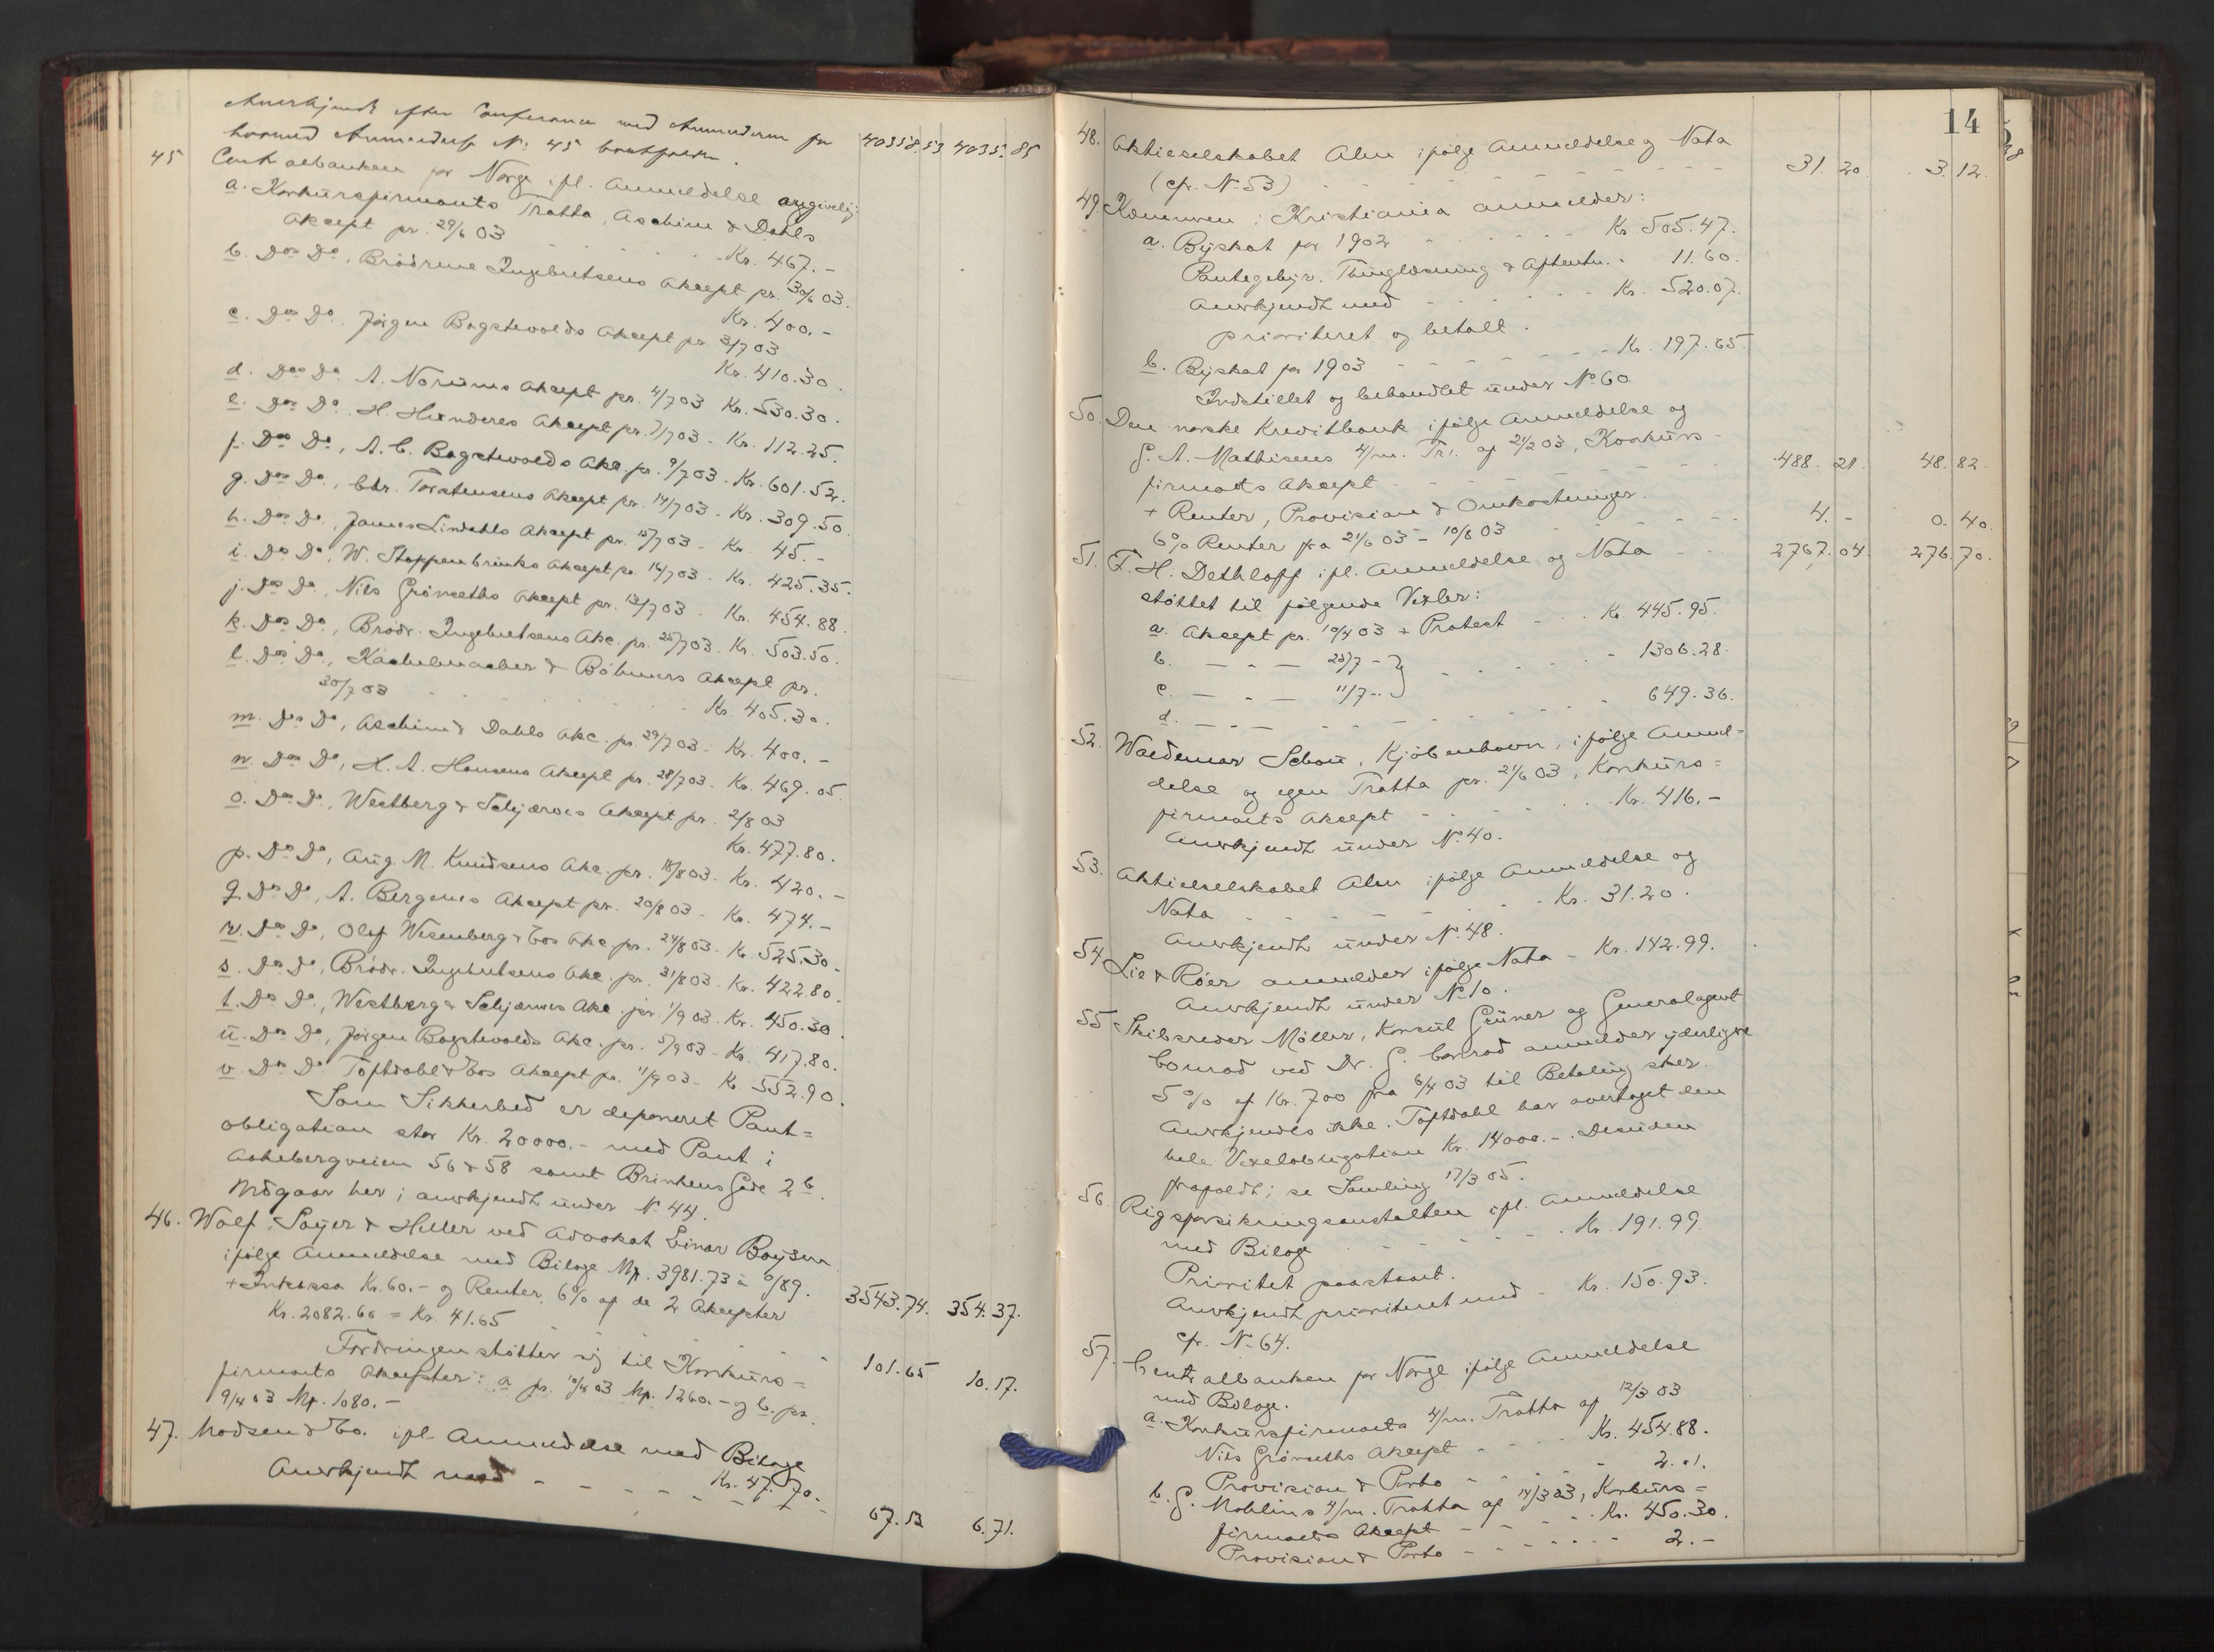 Anerkjendt efter Conferance med Anmelderen for 40358.53 4035.85
hvormed Anmeldelse No. 45 bortfalder.
45 Centralbanken for Norge ifl. Anmeldelse angivelig:
a. Konkursfirmaets Tratta, Aschim & Dahls
Aksept pr. 29/6 03 Kr. 467.-
b. Dos Do, Brödrene Ingebretsens Aksept pr. 30/6 03.
Kr. 400.-
c. Dos Do Jørgen Bogstevolds Aksept pr. 3/7 03
Kr. 410.30.
d. Dos Do A. Norunns Aksept pr. 4/7 03 Kr. 530.30.
e. Dos Do, H. Hunderes Aksept pr. 7/7 03 - Kr. 112.25.
f. Dos Do, A. C. Bogstevolds Akc. pr. 9/7 03. Kr. 601.52.
g. Dos Do, Chr. Torstensens Aksept pr. 14/7 03 - Kr. 309.50
h. Dos Do, James Lindahls Aksept pr. 15/7 03 - Kr. 45.-
i. Dos Do, W. Stoppenbrinks Aksept pr. 14/7 03. Kr. 425.35.
j. Dos Do, Nils Grönseths Aksept pr. 13/7 03. Kr. 454.88.
k. Dos Do, Brödr. Ingebretsens Akc. pr. 25/7 03. Kr. 503.50.
l. Dos Do, Kachelmacher & Böhmers Aksept pr.
30/7 03 Kr. 405.30.
m. Dos Do, Aschim & Dahls Akc. pr. 29/7 03 - Kr. 400.-
n. Dos Do, H. A. Hansens Aksept pr. 28/7 03. Kr. 469.05.
o. Dos Do, Westberg & Schjærves Aksept pr. 2/8 03
Kr. 477.80.
p. Dos Do, Aug. M. Knudsens Akc. pr. 18/8 03. Kr. 420.-
q. Dos Do, A. Bergenes Aksept pr. 20/8 03 - Kr. 474.-
r. Dos Do, Olaf Wesenberg & Cos Akc. pr. 24/8 03. Kr. 525.30.
s. Dos Do, Brödr. Ingebretsens Akc. pr. 31/8 03. Kr. 422.80.
t. Dos Do, Westberg & Schjærves Akc. pr. 1/9 03. Kr. 450.30.
u. Dos Do, Jørgen Bogstevolds Akc. pr. 5/9 03 - Kr. 417.80.
v. Dos Do Toftdahl & Cos Aksept pr. 11/9 03 - Kr. 552.90.
Som Sikkerhed er deponeret Pant=
obligation stor Kr. 20000.- med Pant i
Aakebergveien 56 & 58 samt Brinkens Gade 2b.
Indgaar her i anerkjendt under No 44.
46. Wolf, Sayer & Heller ved Advokat Einar Boysen
ifölge Anmeldelse med Bilage Mk. 3981.73 à 0/89. 3543.74. 354.37.
+ Inkasso Kr. 60.- og Renter 6% af de 2 Aksepter
Kr. 2082.60 = Kr. 41.65 101.65 10.17.
Fordringen støtter sig til Konkurs=
firmaets Aksepter: a pr. 10/4 03 Mk. 1260.- og b. pr.
9/4 03 Mk. 1080.-
47. Madsen & Co. ifl. Anmeldelse med Bilage
Kr. 47.70.
Anerkjendt med 67.13 6.71.
14
48. Aktieselskabet Alm ifölge Anmeldelse og Nota
(cfr. No 53) 31.20 3.12.
49. Kæmneren i Kristiania anmelder:
a. Byskat for 1902 Kr. 505.47.
Pantegebyr. Thinglæsning & Aftentn. 11.60.
Anerkjendt med Kr. 520.07.
prioriteret og betalt.
b. Byskat for 1903 Kr. 197.65.
Indstillet og behandlet under No 60.
50. Den norske Kreditbank ifölge Anmeldelse og
G. A. Mathisens 4/m. Tr. af 21/2 03, Konkurs-
firmaets Aksept 488.21. 48.82.
+ Renter, Provision & Omkostninger.
6% Renter fra 21/6 03 - 10/8 03 4.- 0.40.
51. F. H. Dethloff ifl. Anmeldelse og Nota 2767.04. 276.70.
støttet til følgende Vexler:
a. Aksept pr. 10/4 03 + Protest Kr. 445.95.
b. - " - 25/7 - 1306.28.
c. - " - 11/7 -
d. - " - 649.36.
52. Waldemar Schou, Kjöbenhavn, ifölge Anmel=
delse og egen Tratta pr. 21/6 03, Konkurs=
firmaets Aksept Kr. 416.-
Anerkjendt under No. 40.
53. Aktieselskabet Alm ifölge Anmeldelse og
Nota Kr. 31.20.
Anerkjendt under No. 48.
54 Lie & Röer anmelder ifölge Nota - Kr. 142.99.
Anerkjendt under No 10.
55 Skibsreder Möller, Konsul Grüner og Generalagent
Conrad ved Dr. G. Conrad anmelder yderligere
5% af Kr. 700 fra 6/4 03 til Betaling sker.
Anerkjendes ikke. Toftdahl har overtaget den
hele Vexelobligation Kr. 14000.-. Desuden
frafaldt; se Samling 17/3 05.
56. Rigsforsikringsanstalten ifl. Anmeldelse
med Bilag Kr. 191.99.
Prioritet paastaaet.
Anerkjendt prioriteret med - Kr. 150.93.
cfr. No 64.
57. Centralbanken for Norge ifölge Anmeldelse
med Bilage.
a. Konkursfirmaets 4/m. Tratta af 12/3 03
Nils Grönseths Aksept Kr. 454.88.
Provision & Porto 2.01.
b. G. Mohlins 4/m. Tratta af 14/3 03, Konkurs=
firmaets Aksept Kr. 450.30.
Provision & Porto 2.-